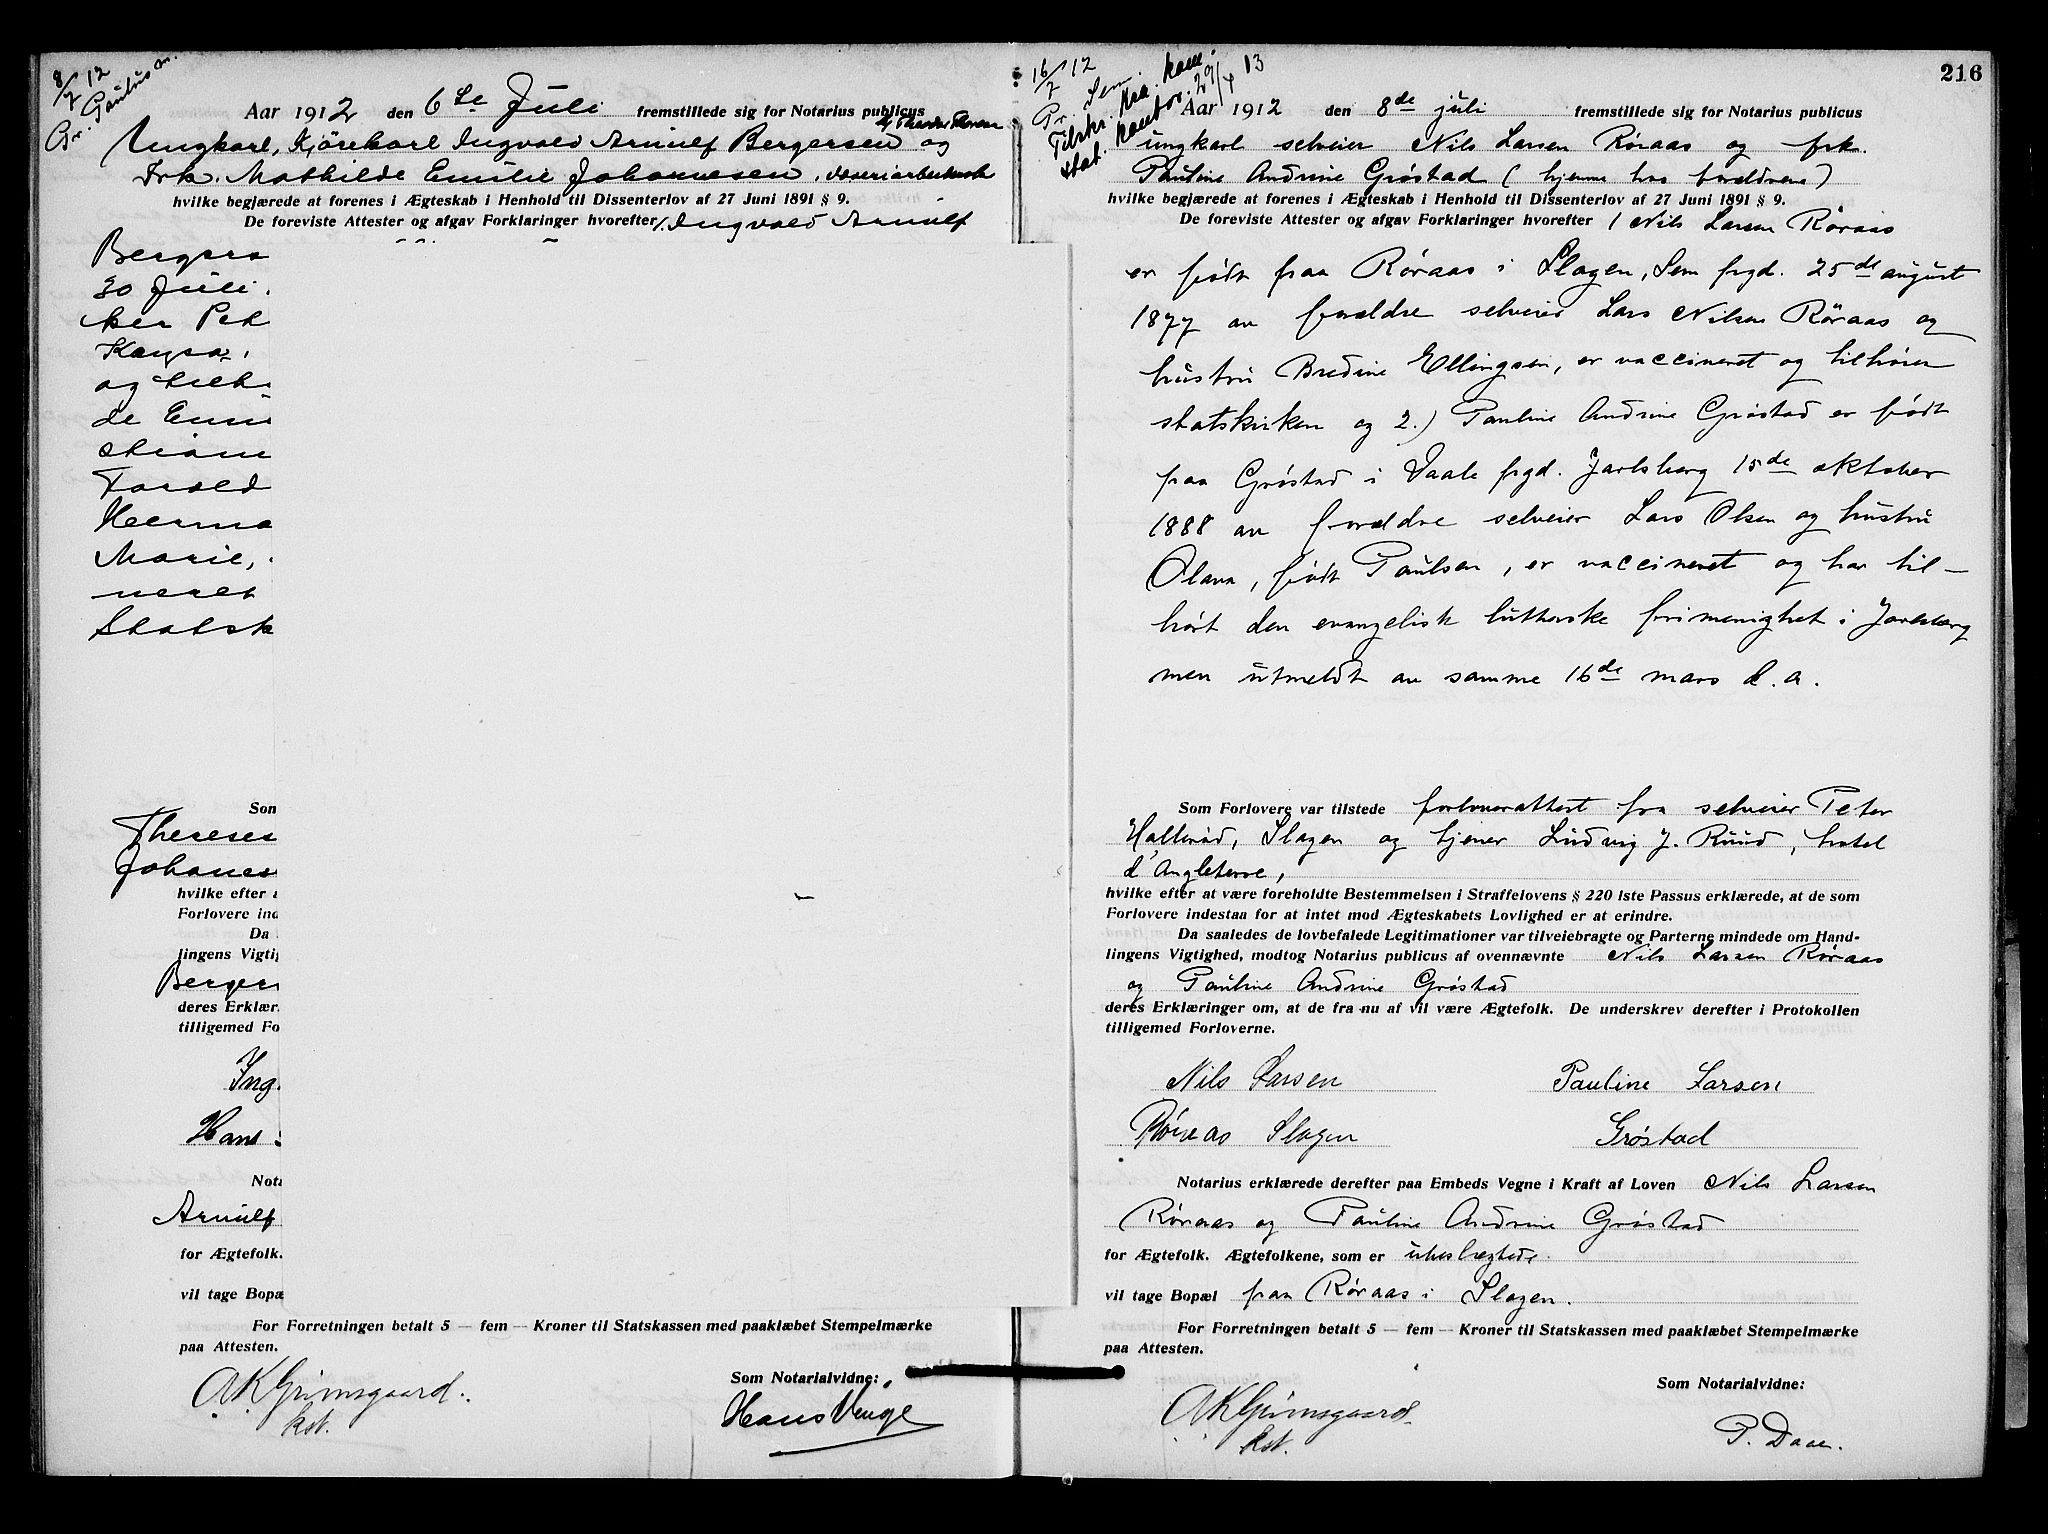 8/7 12
Pr. Paulus m.
Aar 1912 den 6te Juli fremstillede sig for Notarius publicus
Ungkarl, Kjørekarl Ingvald Arnulf Bergersen og
Frk. Mathilde Emilie Johannesen, væveriarbeiderske
hvilke begjærede at forenes i Ægteskab i Henhold til Dissenterlov af 27 Juni 1891 § 9.
De foreviste Attester og afgav Forklaringer hvorefter 1. Ingvald Arnulf
Bergers
30 Juli
ker Pet
Kaysa,
og tilh
de Emi
stiania
Foræld
Herma
Marie,
neret
Statsk
Som
Theres
Johanes
hvilke efter a
Forlovere ind
Da
lingens Vigtig
Berger
deres Erklær
tilligemed Fo
Ing.
Hans
Nota
Arnulf
for Ægtefolk.
vil tage Bopæ
For Forretningen betalt 5 — fem — Kroner til Statskassen med paaklæbet Stempelmærke
paa Attesten.
A K Grimsgaard.
kst.
Som Notarialvidne:
Hans Venge
216
16/7 12
Pr. Sem.
Tilskr. Kra. kom.
stat. kontor. 29/4 13
Aar 1912 den 8de juli fremstillede sig for Notarius publicus
ungkarl selveier Nils Larsen Røraas og frk.
Pauline Andrine Grøstad (hjemme hos forældrene)
hvilke begjærede at forenes i Ægteskab i Henhold til Dissenterlov af 27 Juni 1891 § 9.
De foreviste Attester og afgav Forklaringer hvorefter 1 Nils Larsen Røraas
er født paa Røraas i Slagen, Sem prgd. 25de august
1877 av forældre selveier Lars Nilsen Røraas og
hustru Bredine Ellingsen, er vaccineret og tilhører
statskirken og 2.) Pauline Andrine Grøstad er født
paa Grøstad i Vaale prgd. Jarlsberg 15de oktober
1888 av forældre selveier Lars Olsen og hustru
Olava, født Paulsen, er vaccineret og har til–
hørt den evangelisk lutherske frimenighet i Jarlsberg
men utmeldt av samme 16de mars d.a.
Som Forlovere var tilstede forloverattest fra selveier Peter
Hallerød, Slagen og tjener Ludvig J. Ruud, hotel
d'Angleterre,
hvilke efter at være foreholdte Bestemmelsen i Straffelovens § 220 1ste Passus erklærede, at de som
Forlovere indestaa for at intet mod Ægteskabets Lovlighed er at erindre.
Da saaledes de lovbefalede Legitimationer var tilveiebragte og Parterne mindede om Hand-
lingens Vigtighed, modtog Notarius publicus af ovennævnte Nils Larsen Røraas
og Pauline Andrine Grøstad
deres Erklæringer om, at de fra nu af vil være Ægtefolk. De underskrev derefter i Protokollen
tilligemed Forloverne.
Nils Larsen Pauline Larsen
Røraas Slagen Grøstad
Notarius erklærede derefter paa Embeds Vegne i Kraft af Loven Nils Larsen
Røraas og Pauline Andrine Grøstad
for Ægtefolk. Ægtefolkene, som er ubeslegtede.
vil tage Bopæl paa Røraas i Slagen.
For Forretningen betalt 5 — fem — Kroner til Statskassen med paaklæbet Stempelmærke
paa Attesten.
A K Grimsgaard.
kst.
Som Notarialvidne:
P. Daae.